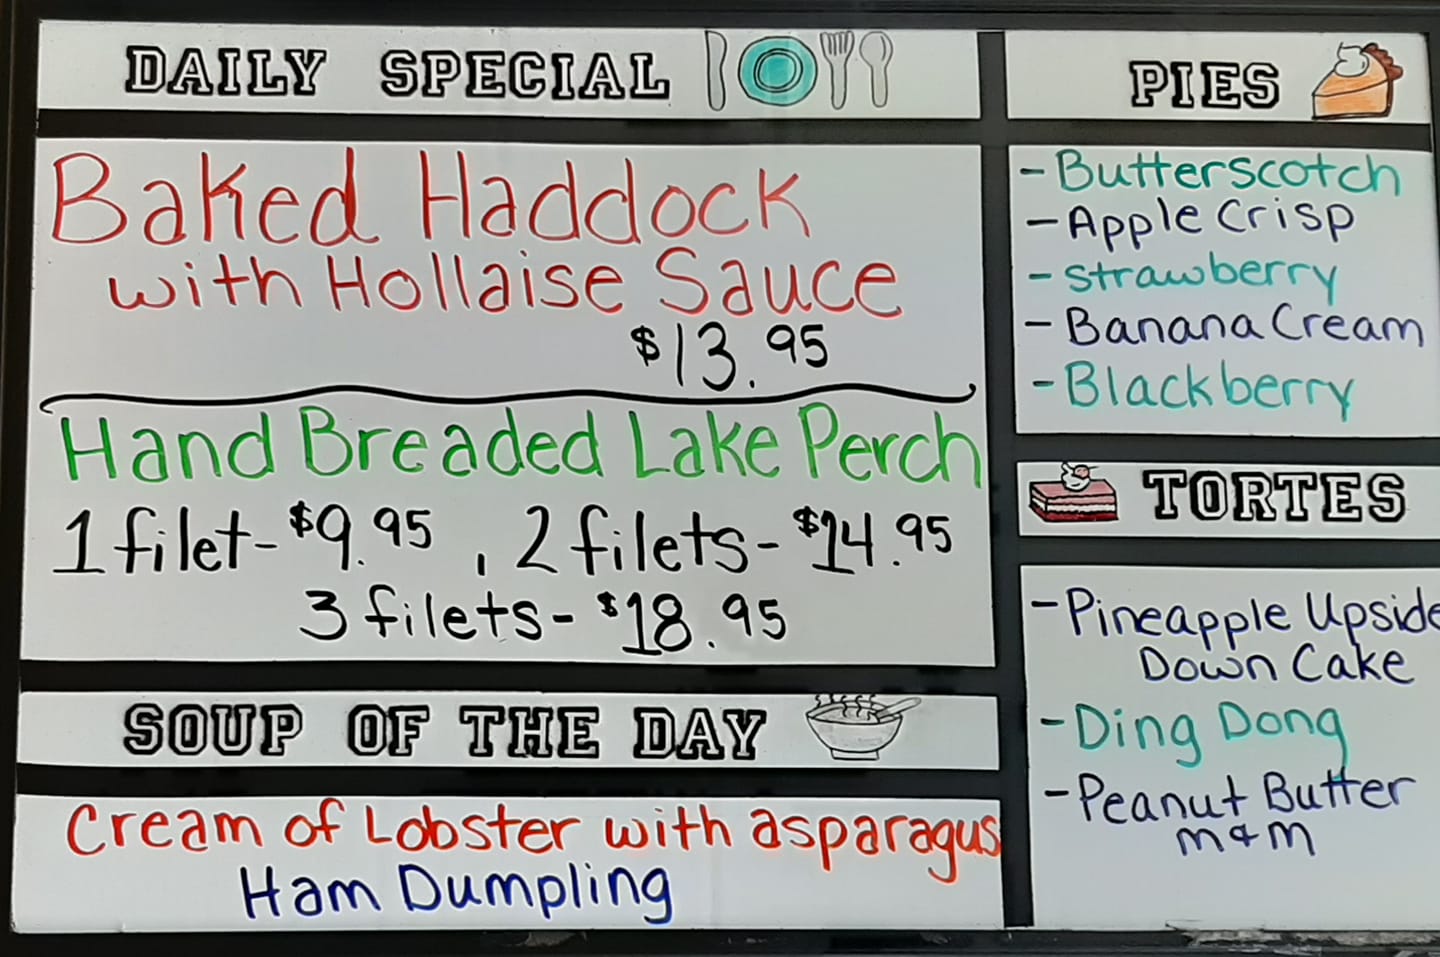 DAILY SPECIAL
Baked Haddock
with Hollaise Sauce
$13.95
Hand Breaded Lake Perch
1 filet- $9.95, 2 filets- $14.95
3 filets- $18.95
SOUP OF THE DAY
Cream of Lobster with asparagus
Ham Dumpling
PIES
- Butterscotch
- Apple Crisp
- Strawberry
- Banana Cream
- Blackberry
TORTES
- Pineapple Upside
Down Cake
- Ding Dong
- Peanut Butter
m & m